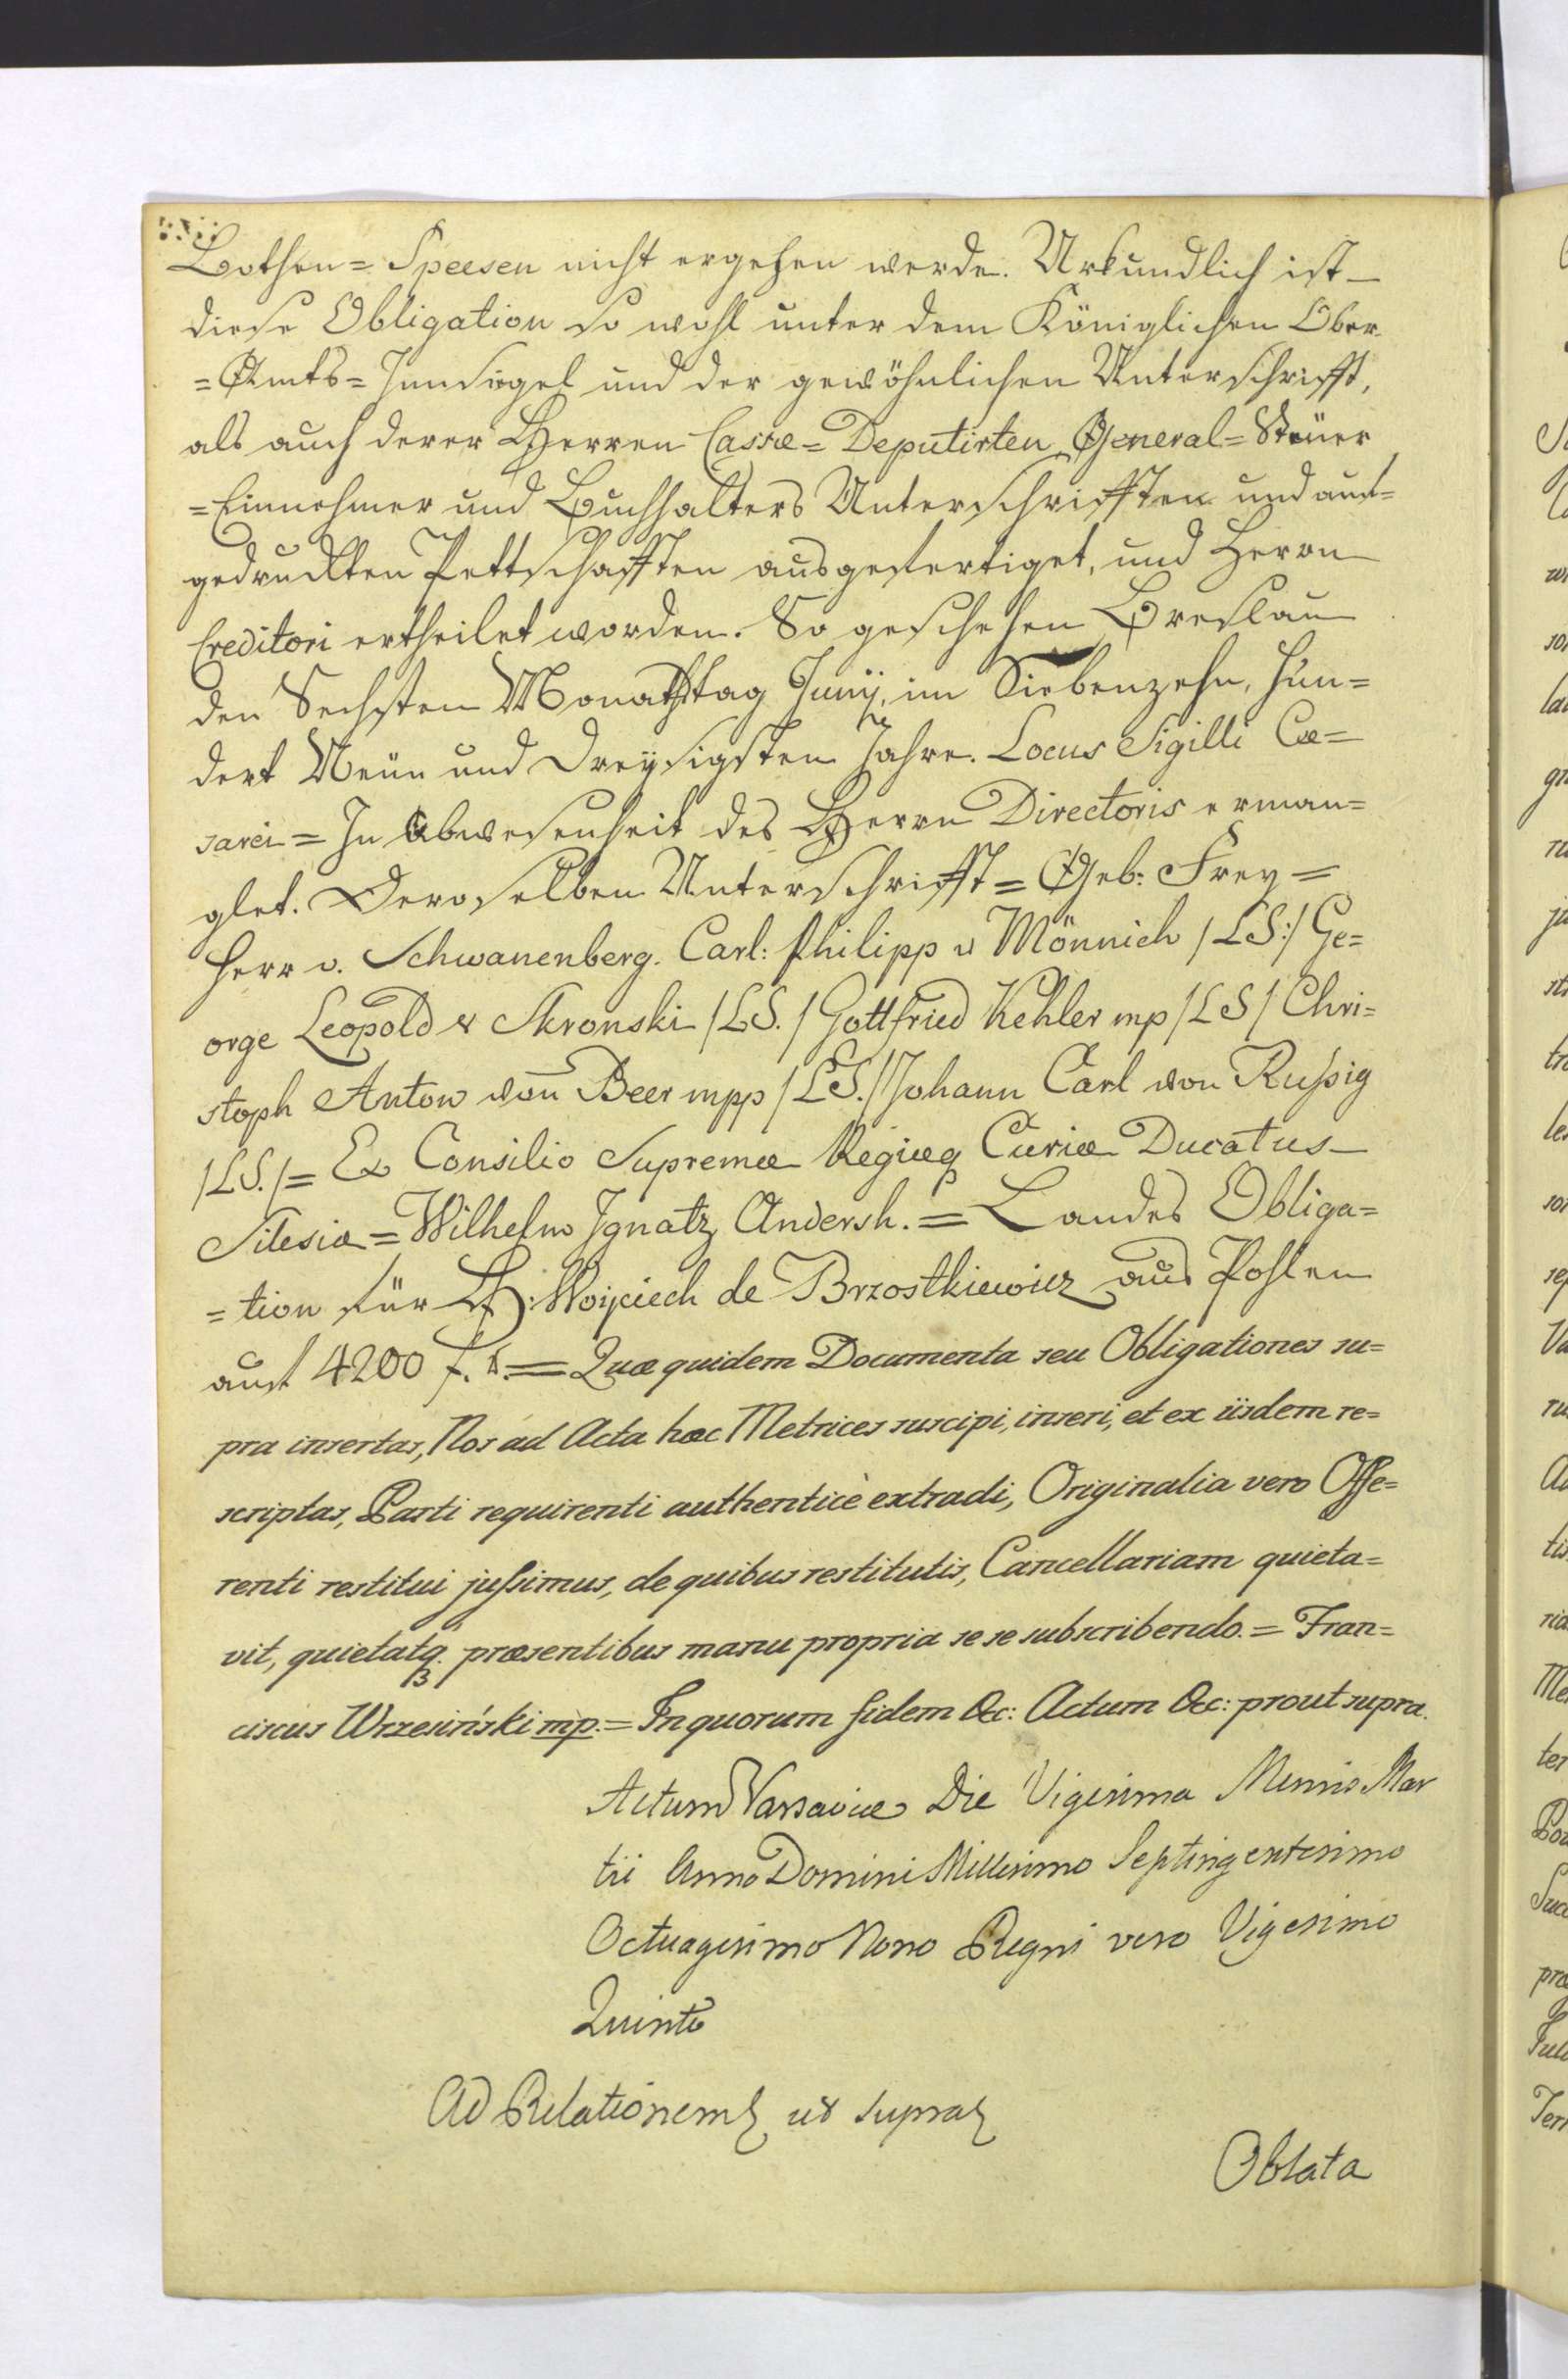 Bothen=Speesen nicht ergehen werde. Urkundlich ist
diese Obligation so wohl unter dem Königlichen Ober
=Ambts=Innsiegel und der gewöhnlichen Unterschrifft,
als auch derer Herren Cassæ=Deputirten General=Steüer
=Einnehmer und Buchhalters Unterschrifften und auf=
gedruckten Pettschafften ausgefertiget, und Herrn
Creditori ertheilet worden. So geschehen Breslau
den Sechsten Monathstag Junij, im Siebenzehn, hun=
dert Neün und Dreÿsigsten Jahre. Locus Sigilli Cæ=
sarei = In Abwesenheit des Herrn Directoris erman=
glet. Deroselben Unterschrifft = Geb: Frey=
herr v. Schwanenberg. Carl: Philipp v Mönnich /LS:/ Ge=
orge Leopold v Skronski /LS./ Gottfried Kehler mp /LS/ Chri=
stoph Anton von Beer mpp /LS./ Johann Carl von Rußig
/LS./ = Ex Consilio Supremæ Regiæq Curiæ Ducatus
Silesiæ = Wilhelm Ignatz Andersh. = Landes Obliga=
=tion für H: Woyciech de Brzostkiewicz aus Pohlen
auf 4200 f. = Quæ quidem Documenta seu Obligationes su=
pra insertas, Nos ad Acta hæc Metrices suscipi, inseri, et ex iisdem re=
scriptas, Parti requirenti authenticè extradi, Originalia vero Offe=
renti restitui jußimus, de quibus restitutis, Cancellariam quieta=
vit, quietatq. præsentibus manu propria se se subscribendo. = Fran=
ciscus Wrzesiński mp. = In quorum fidem &c: Actum &c: prout supra.
Actum Varsaviæ Die Vigesima Mensis Mar
tii Anno Domini Millesimo Septingentesimo
Octuagesimo Nono Regni vero Vigesimo
Quinto
Ad Relationem ut supra
Oblata